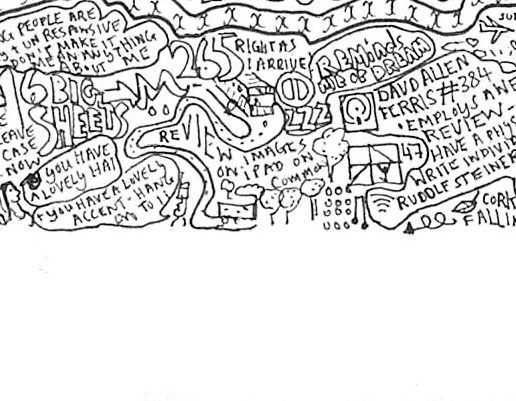 PEOPLE ARE
UN RESPONSIVE
DON'T MAKE IT
MEAN ANYTHING
ABOUT ME
265
RIGHT AS
I ARRIVE
REMINDS
ME OF DREAM
ZZZ
16 BIG
SHEELS
LEAVE
CASE
NOW
YOU HAVE
A LOVELY HAI
YOU HAVE A LOVELY
ACCENT - HANG
ON TO IT
REVIEW IMAGES
ON IPAD ON
COMMON
47
DAVD ALLEN
FERRIS #384
EMPLOYS AWE
REVIEW
HAVE A PHYS
WRITE INDIVID
RUDOLF STEINER
CORK
FALLIN